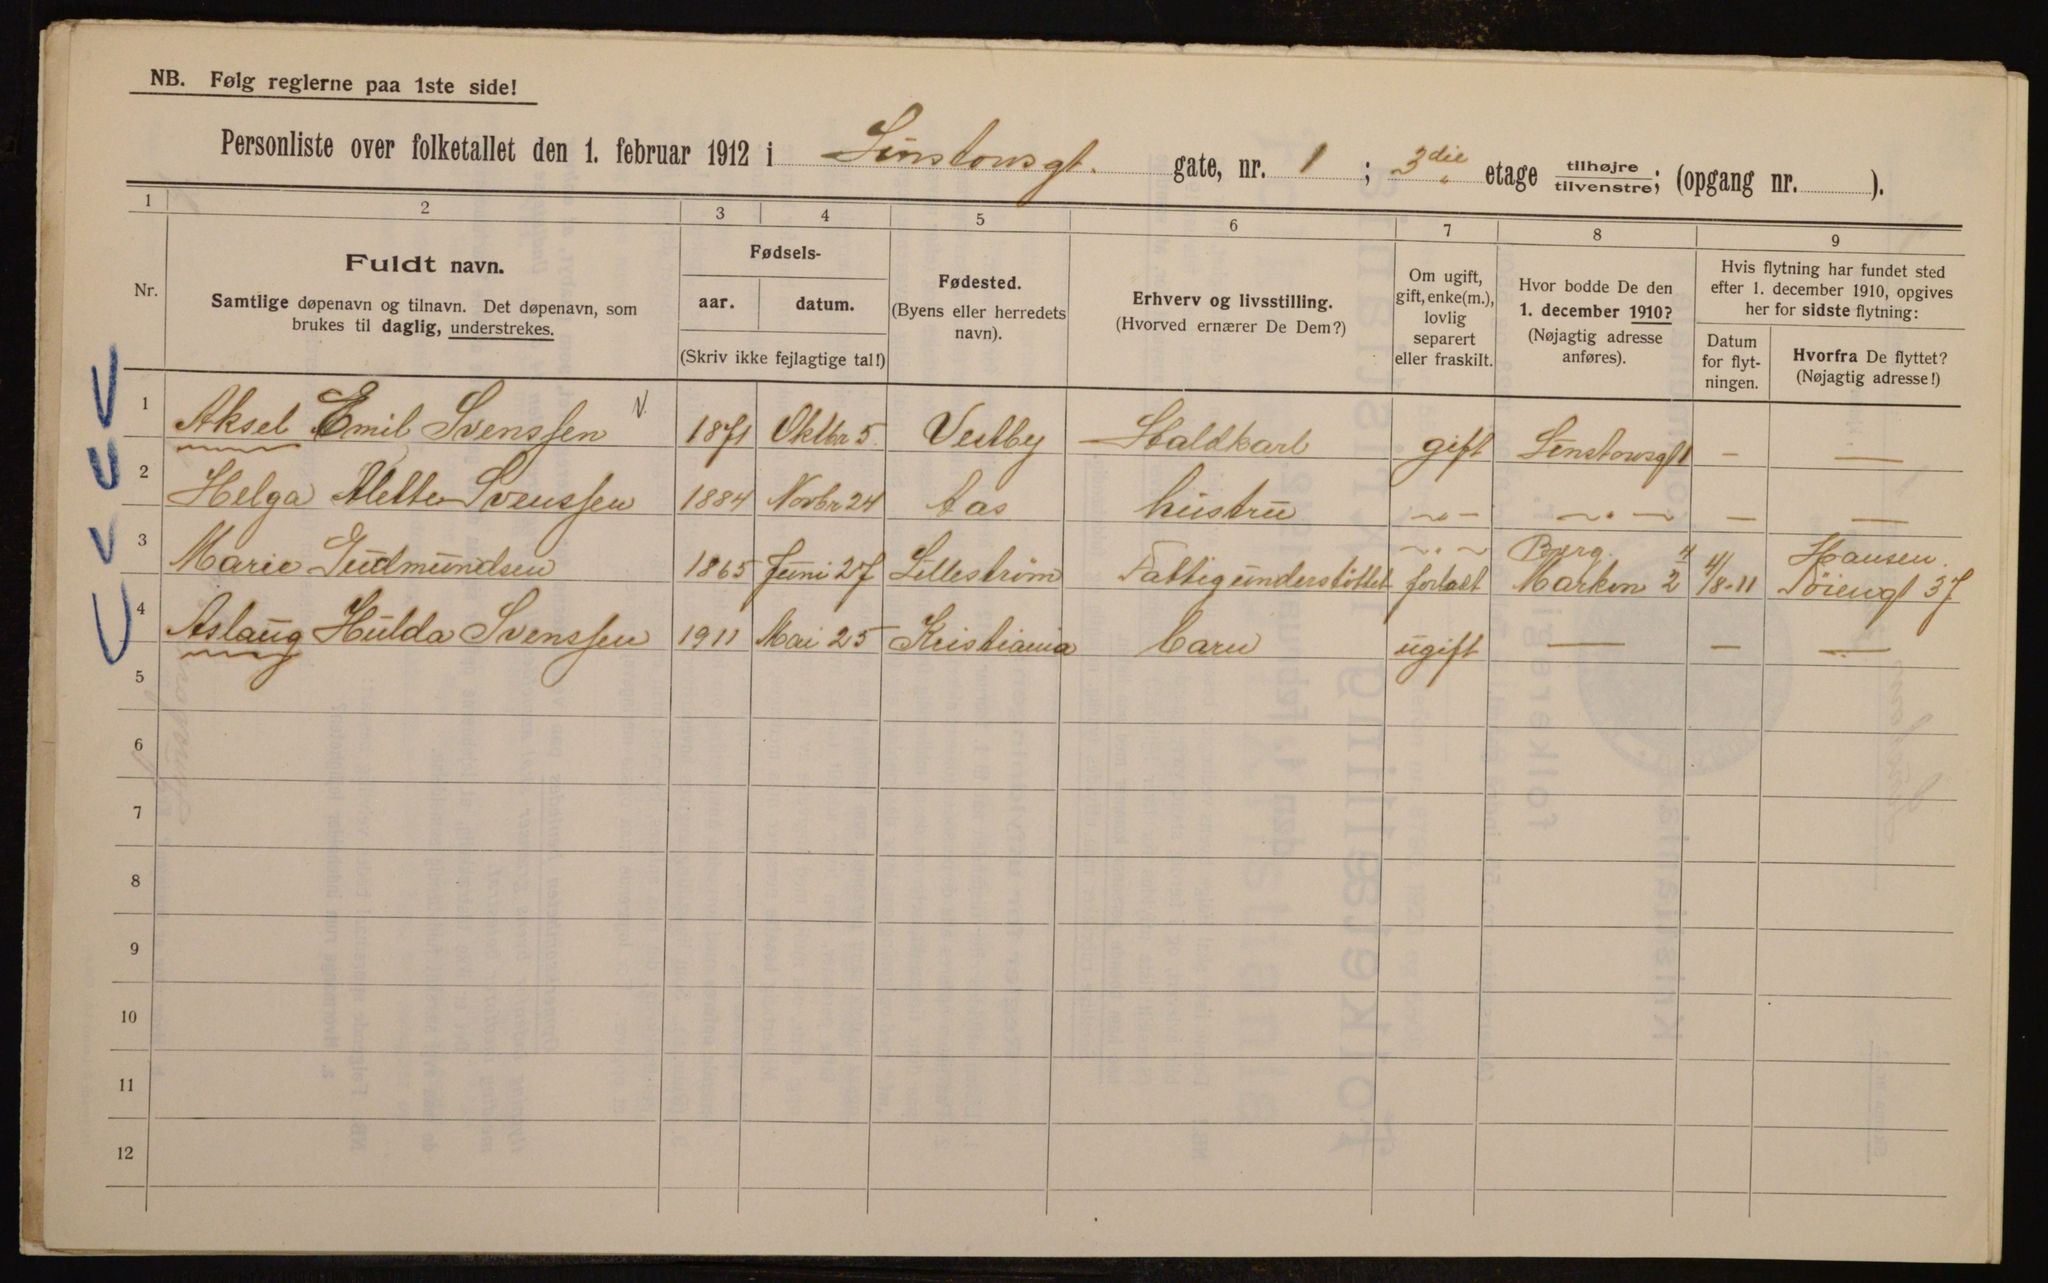 NB. Følg reglerne paa 1ste side!
Personliste over folketallet den 1. februar 1912 i Linstowsgt. gate, nr. 1 ; 3die etage tilhøjre/tilvenstre; (opgang nr. ).
1 2 3 4 5 6 7 8 9
Nr.
Fuldt navn.
Samtlige døpenavn og tilnavn. Det døpenavn, som
brukes til daglig, understrekes.
Fødsels-
aar. datum.
(Skriv ikke fejlagtige tal!)
Fødested.
(Byens eller herredets
navn).
Erhverv og livsstilling.
(Hvorved ernærer De Dem?)
Om ugift,
gift, enke(m.),
lovlig
separert
eller fraskilt.
Hvor bodde De den
1. december 1910?
(Nøjagtig adresse
anføres).
Hvis flytning har fundet sted
efter 1. december 1910, opgives
her for sidste flytning:
Datum
for flyt-
ningen.
Hvorfra De flyttet?
(Nøjagtig adresse!)
1 Aksel Emil Svenssen 1871 Oktbr 5. Vestby Staldkarl gift Linstowsgt 1 — —
2 Helga Alette Svenssen 1884 Novbr 24 Aas hustru —"— —"— — —
3 Marie Gudmundsen 1865 Juni 27 Lillestrøm Fattigunderstøttet —"— forladt Berg. Marken 2 4/8-11 Hansen. Tøiengt 37
4 Aslaug Hulda Svenssen 1911 Mai 25 Kristiania barn ugift — — —
5
6
7
8
9
10
11
12